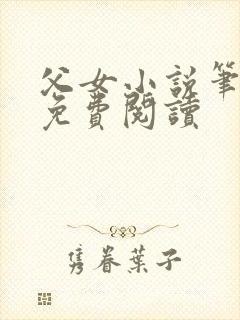 父女小说筆
免費閱讀
隽眷葉子